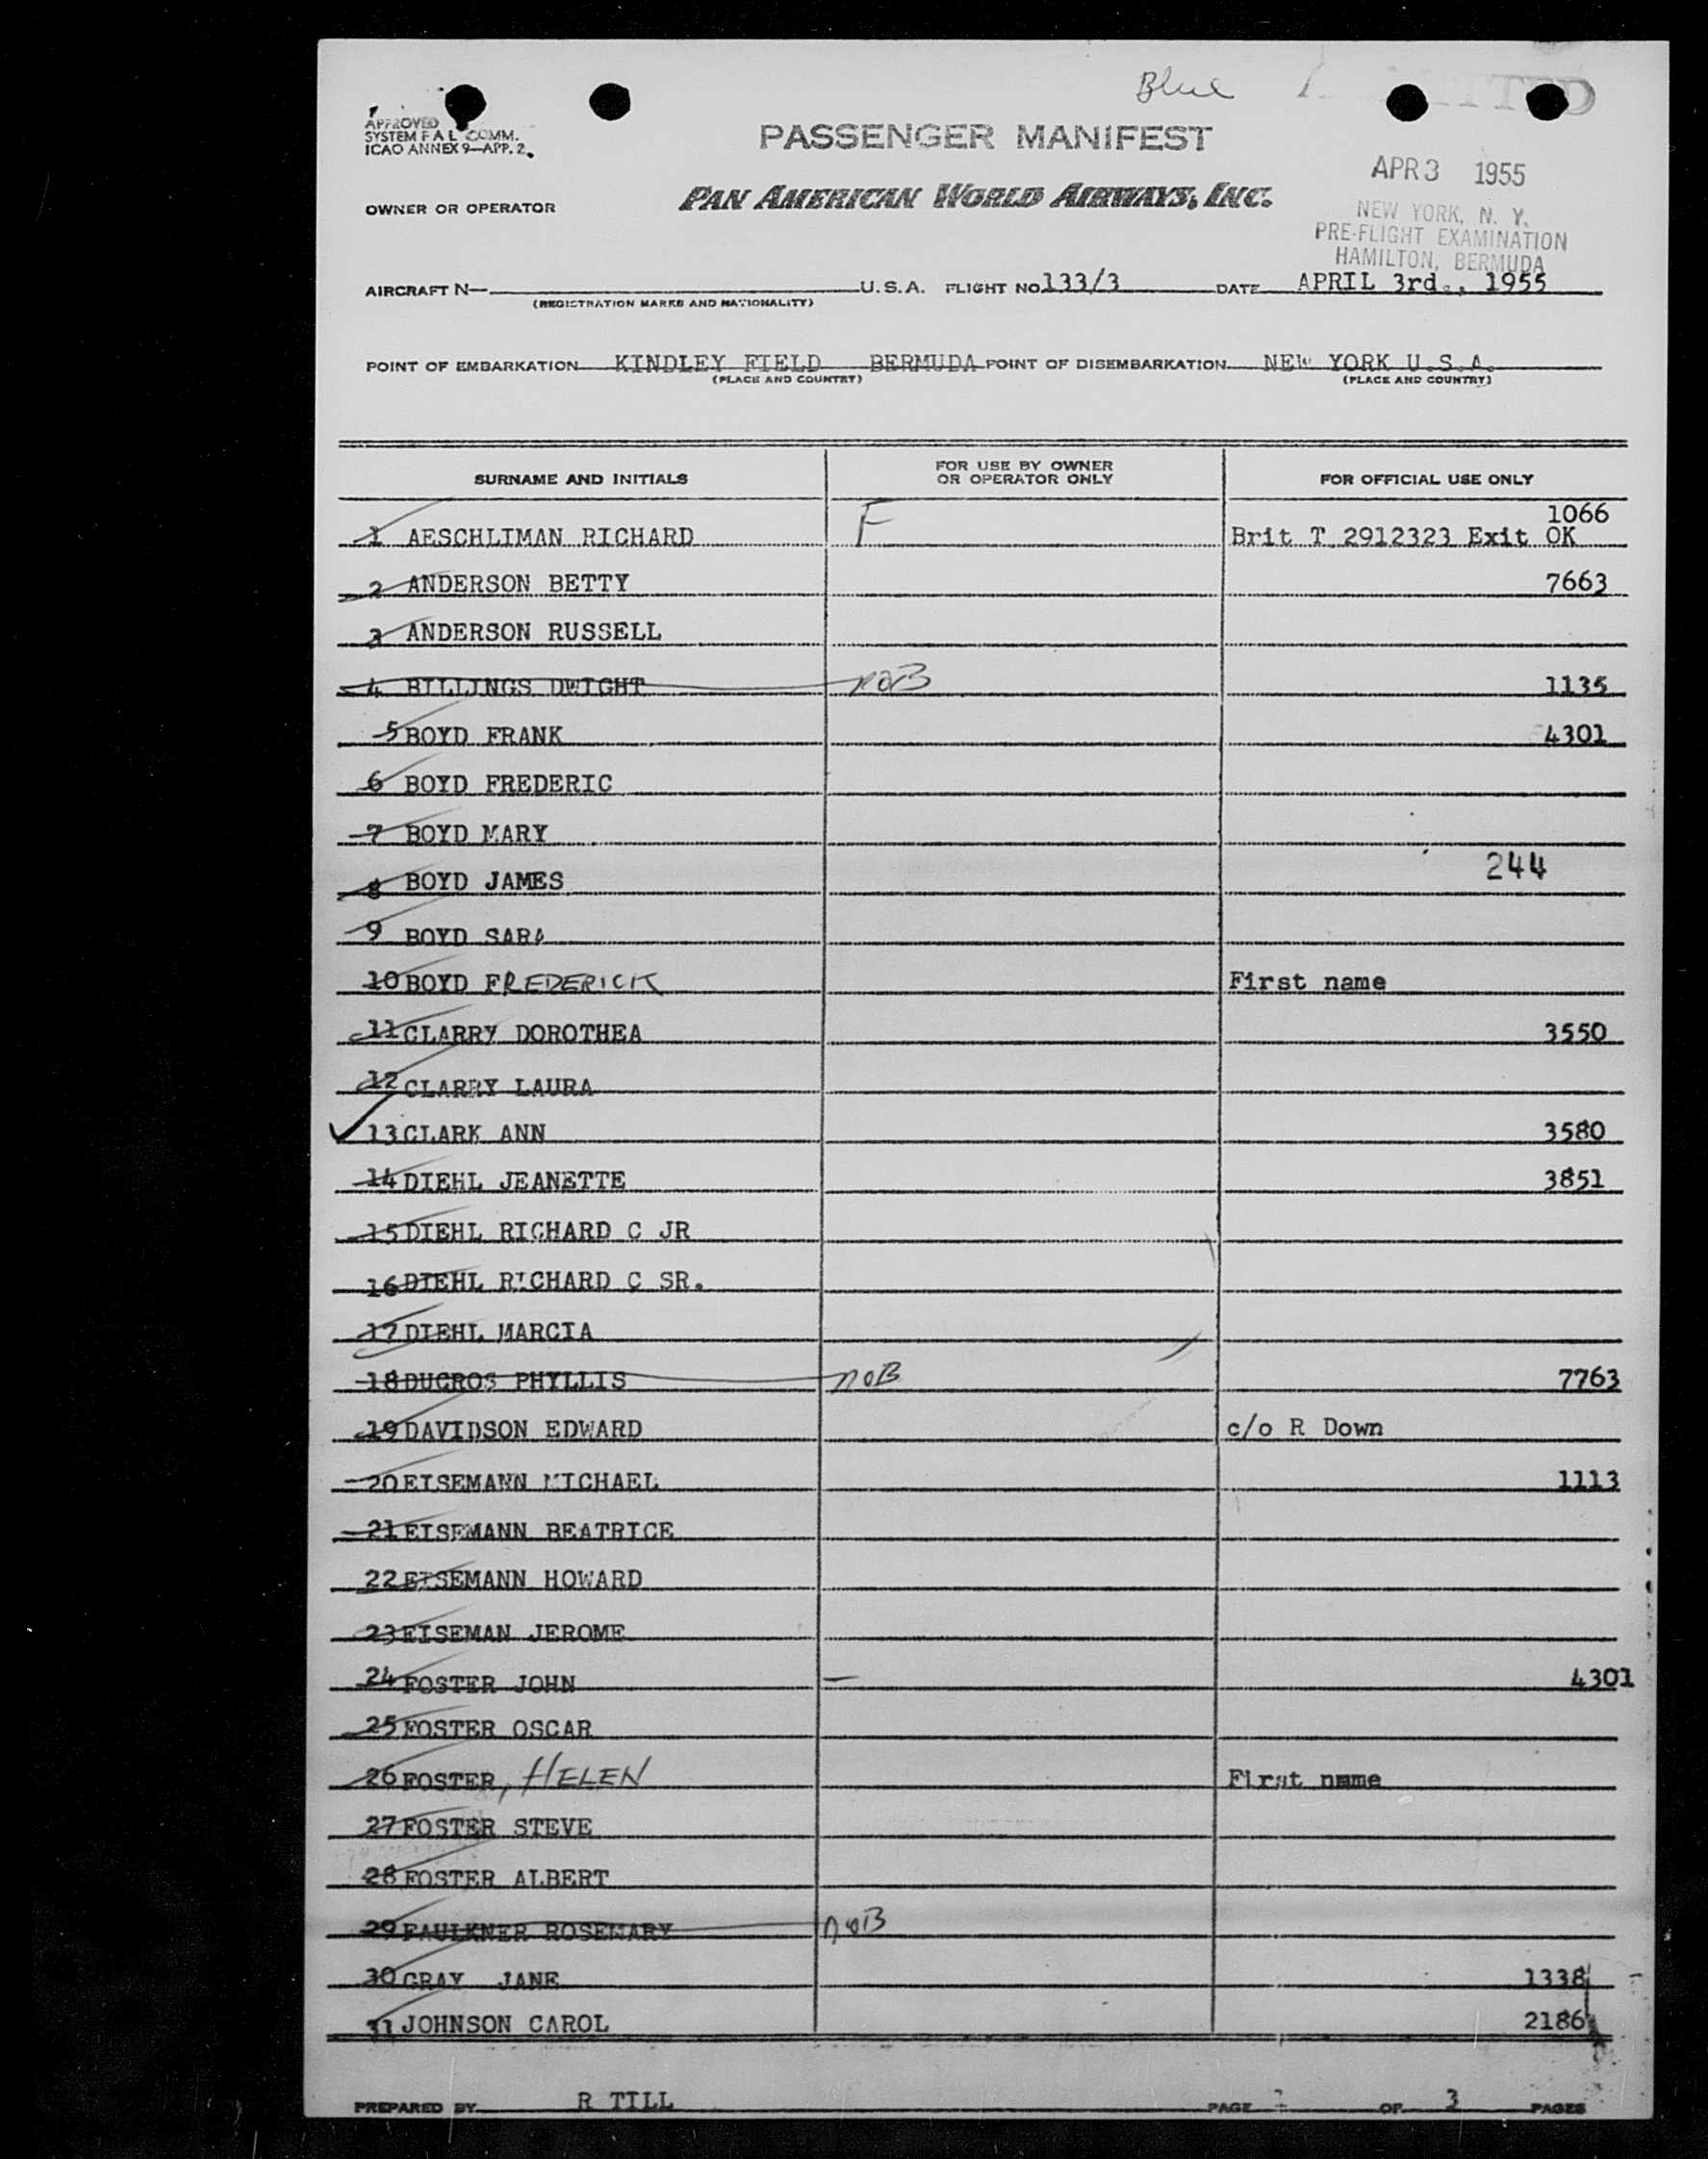 Blue
APPROVED
SYSTEM F A L COMM.
ICAO ANNEX 9—APP. 2.
PASSENGER MANIFEST
APR 3 1955
OWNER OR OPERATOR PAN AMERICAN WORLD AIRWAYS, INC.
NEW YORK, N. Y.
PRE-FLIGHT EXAMINATION
HAMILTON, BERMUDA
AIRCRAFT N— U.S.A. FLIGHT NO 133/3 DATE APRIL 3rd., 1955
(REGISTRATION MARKS AND NATIONALITY)
POINT OF EMBARKATION KINDLEY FIELD BERMUDA POINT OF DISEMBARKATION NEW YORK U.S.A.
(PLACE AND COUNTRY) (PLACE AND COUNTRY)
SURNAME AND INITIALS FOR USE BY OWNER OR OPERATOR ONLY FOR OFFICIAL USE ONLY
1066
1 AESCHLIMAN RICHARD F Brit T 2912323 Exit OK
2 ANDERSON BETTY 7663
3 ANDERSON RUSSELL
4 BILLINGS DWIGHT noB 1135
5 BOYD FRANK 4301
6 BOYD FREDERIC
7 BOYD MARY
8 BOYD JAMES 244
9 BOYD SARA
10 BOYD FREDERICK First name
11 CLARRY DOROTHEA 3550
12 CLARRY LAURA
13 CLARK ANN 3580
14 DIEHL JEANETTE 3851
15 DIEHL RICHARD C JR
16 DIEHL RICHARD C SR.
17 DIEHL MARCIA
18 DUCROS PHYLLIS noB 7763
19 DAVIDSON EDWARD c/o R Down
20 EISEMANN MICHAEL 1113
21 EISEMANN BEATRICE
22 EISEMANN HOWARD
23 EISEMAN JEROME
24 FOSTER JOHN — 4301
25 FOSTER OSCAR
26 FOSTER, HELEN First name
27 FOSTER STEVE
28 FOSTER ALBERT
29 FAULKNER ROSEMARY noB
30 GRAY JANE 1338
31 JOHNSON CAROL 2186
PREPARED BY R TILL PAGE OF 3 PAGES